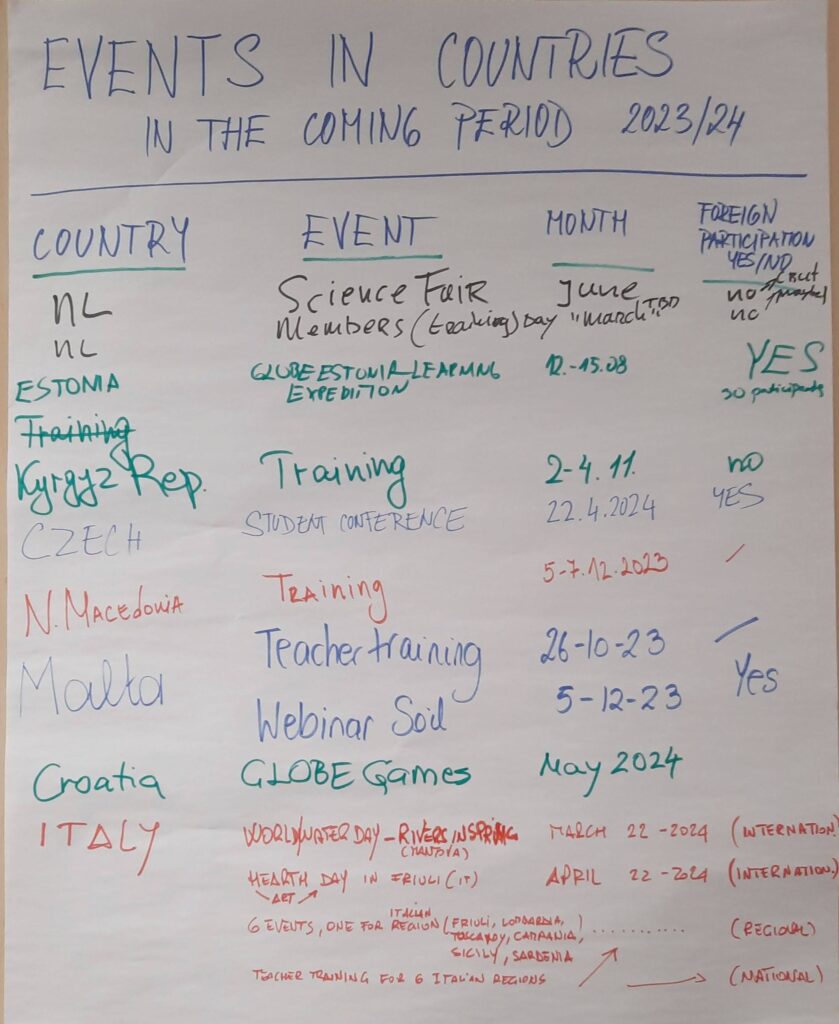 EVENTS IN COUNTRIES
IN THE COMING PERIOD 2023/24
COUNTRY EVENT MONTH FOREIGN PARTICIPATION YES/NO
NL Science Fair June no (but
NL Members (training) Day "March" TBD no
ESTONIA GLOBE ESTONIA LEARNING EXPEDITION 12.-15.08 YES
30 participants
Training
Kyrgyz Rep. Training 2-4.11. no
CZECH STUDENT CONFERENCE 22.4.2024 YES
N. MACEDONIA TRAINING 5-7.12.2023 /
Malta Teacher training 26-10-23 /
Webinar Soil 5-12-23 Yes
Croatia GLOBE Games May 2024
ITALY WORLD WATER DAY - RIVERS IN SPRING MARCH 22 - 2024 (INTERNATION.)
(MANTOVA)
HEARTH DAY IN FRIULI (IT) APRIL 22 - 2024 (INTERNATION.)
ART
6 EVENTS, ONE FOR ITALIAN REGION (FRIULI, LOMBARDIA, .......... (REGIONAL)
TOSCANDY, CAMPANIA,
SICILY, SARDENIA
TEACHER TRAINING FOR 6 ITALIAN REGIONS (NATIONAL)